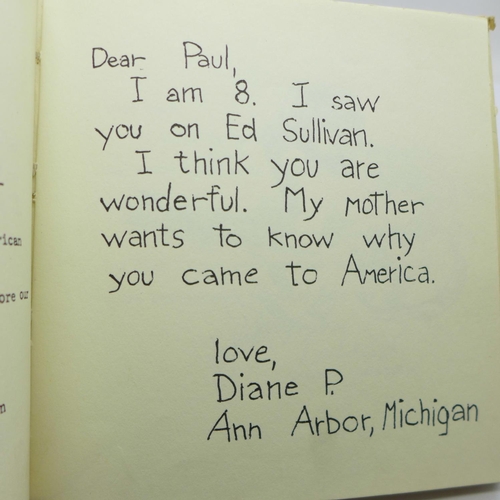 Dear Paul,
I am 8. I saw
you on Ed Sullivan.
I think you are
wonderful. My mother
wants to know why
you came to America.
love,
Diane P.
Ann Arbor, Michigan